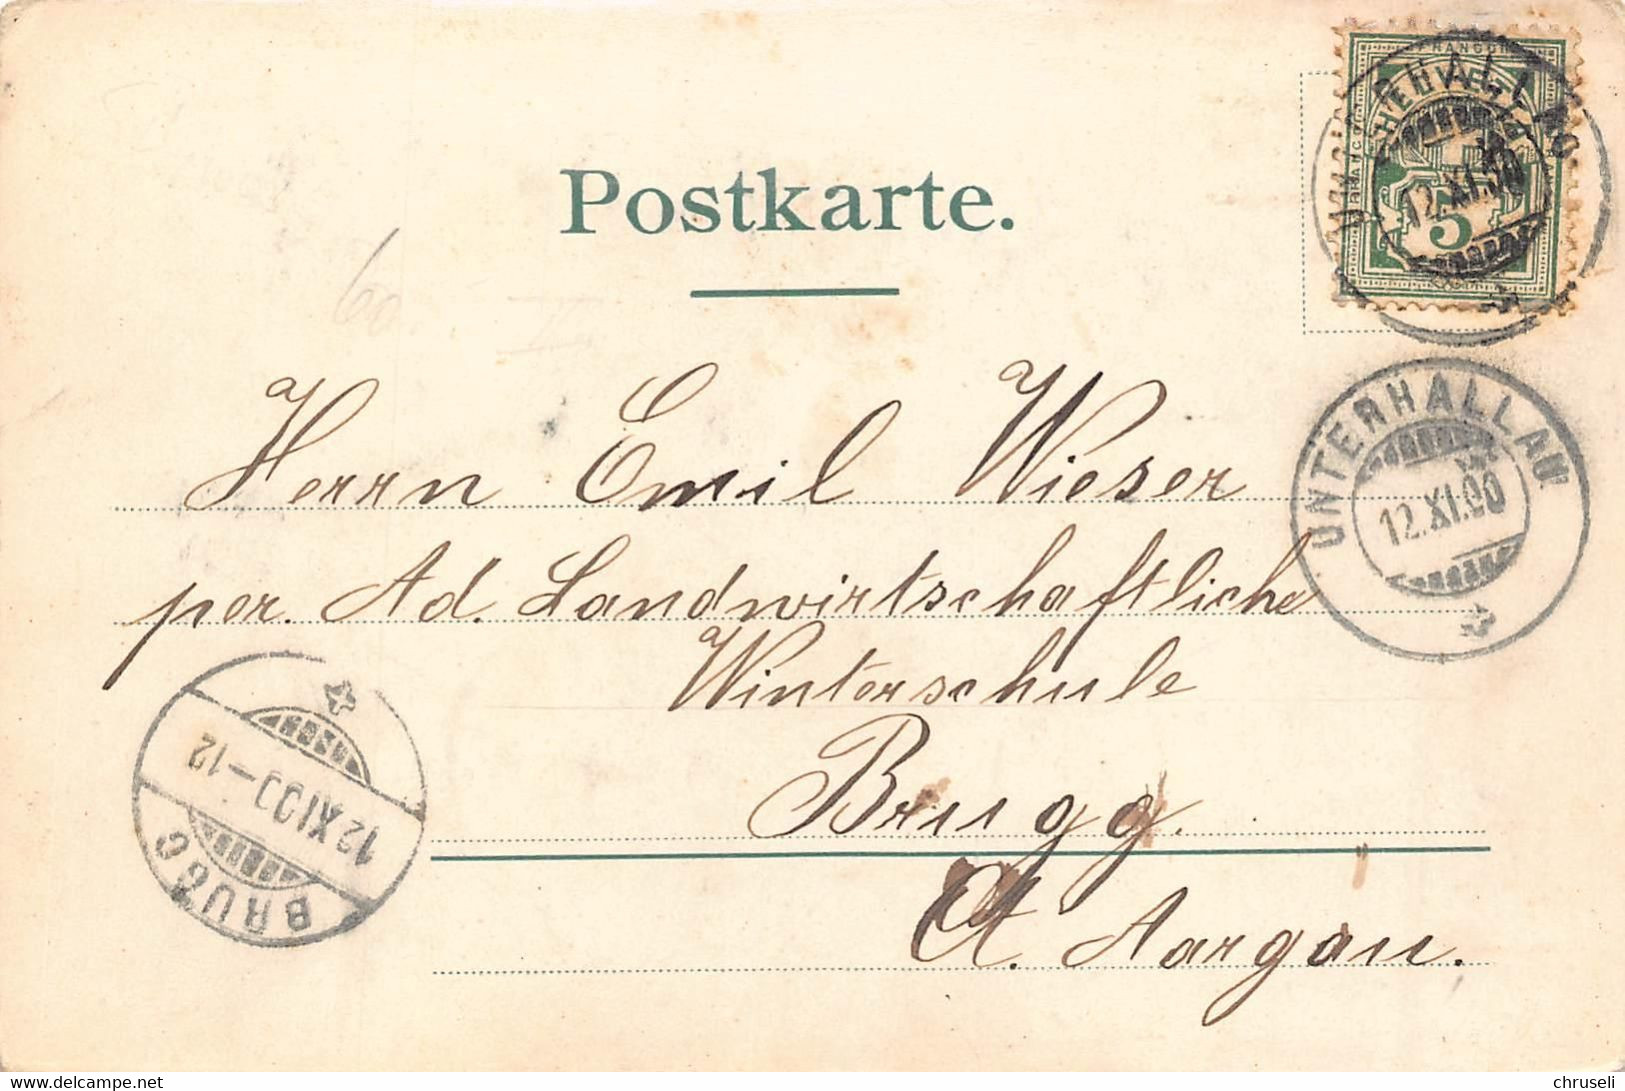 FRANCO
HELVETIA
5
UNTERHALLAU
12.XI.00
Postkarte.
UNTERHALLAU
12.XI.00
60.
Herrn Emil Wieser
per. Ad. Landwirtschaftliche
Winterschule
Brugg.
Ct. Aargau.
BRUGG
12 XI 00-12
delcampe.net
chruseli